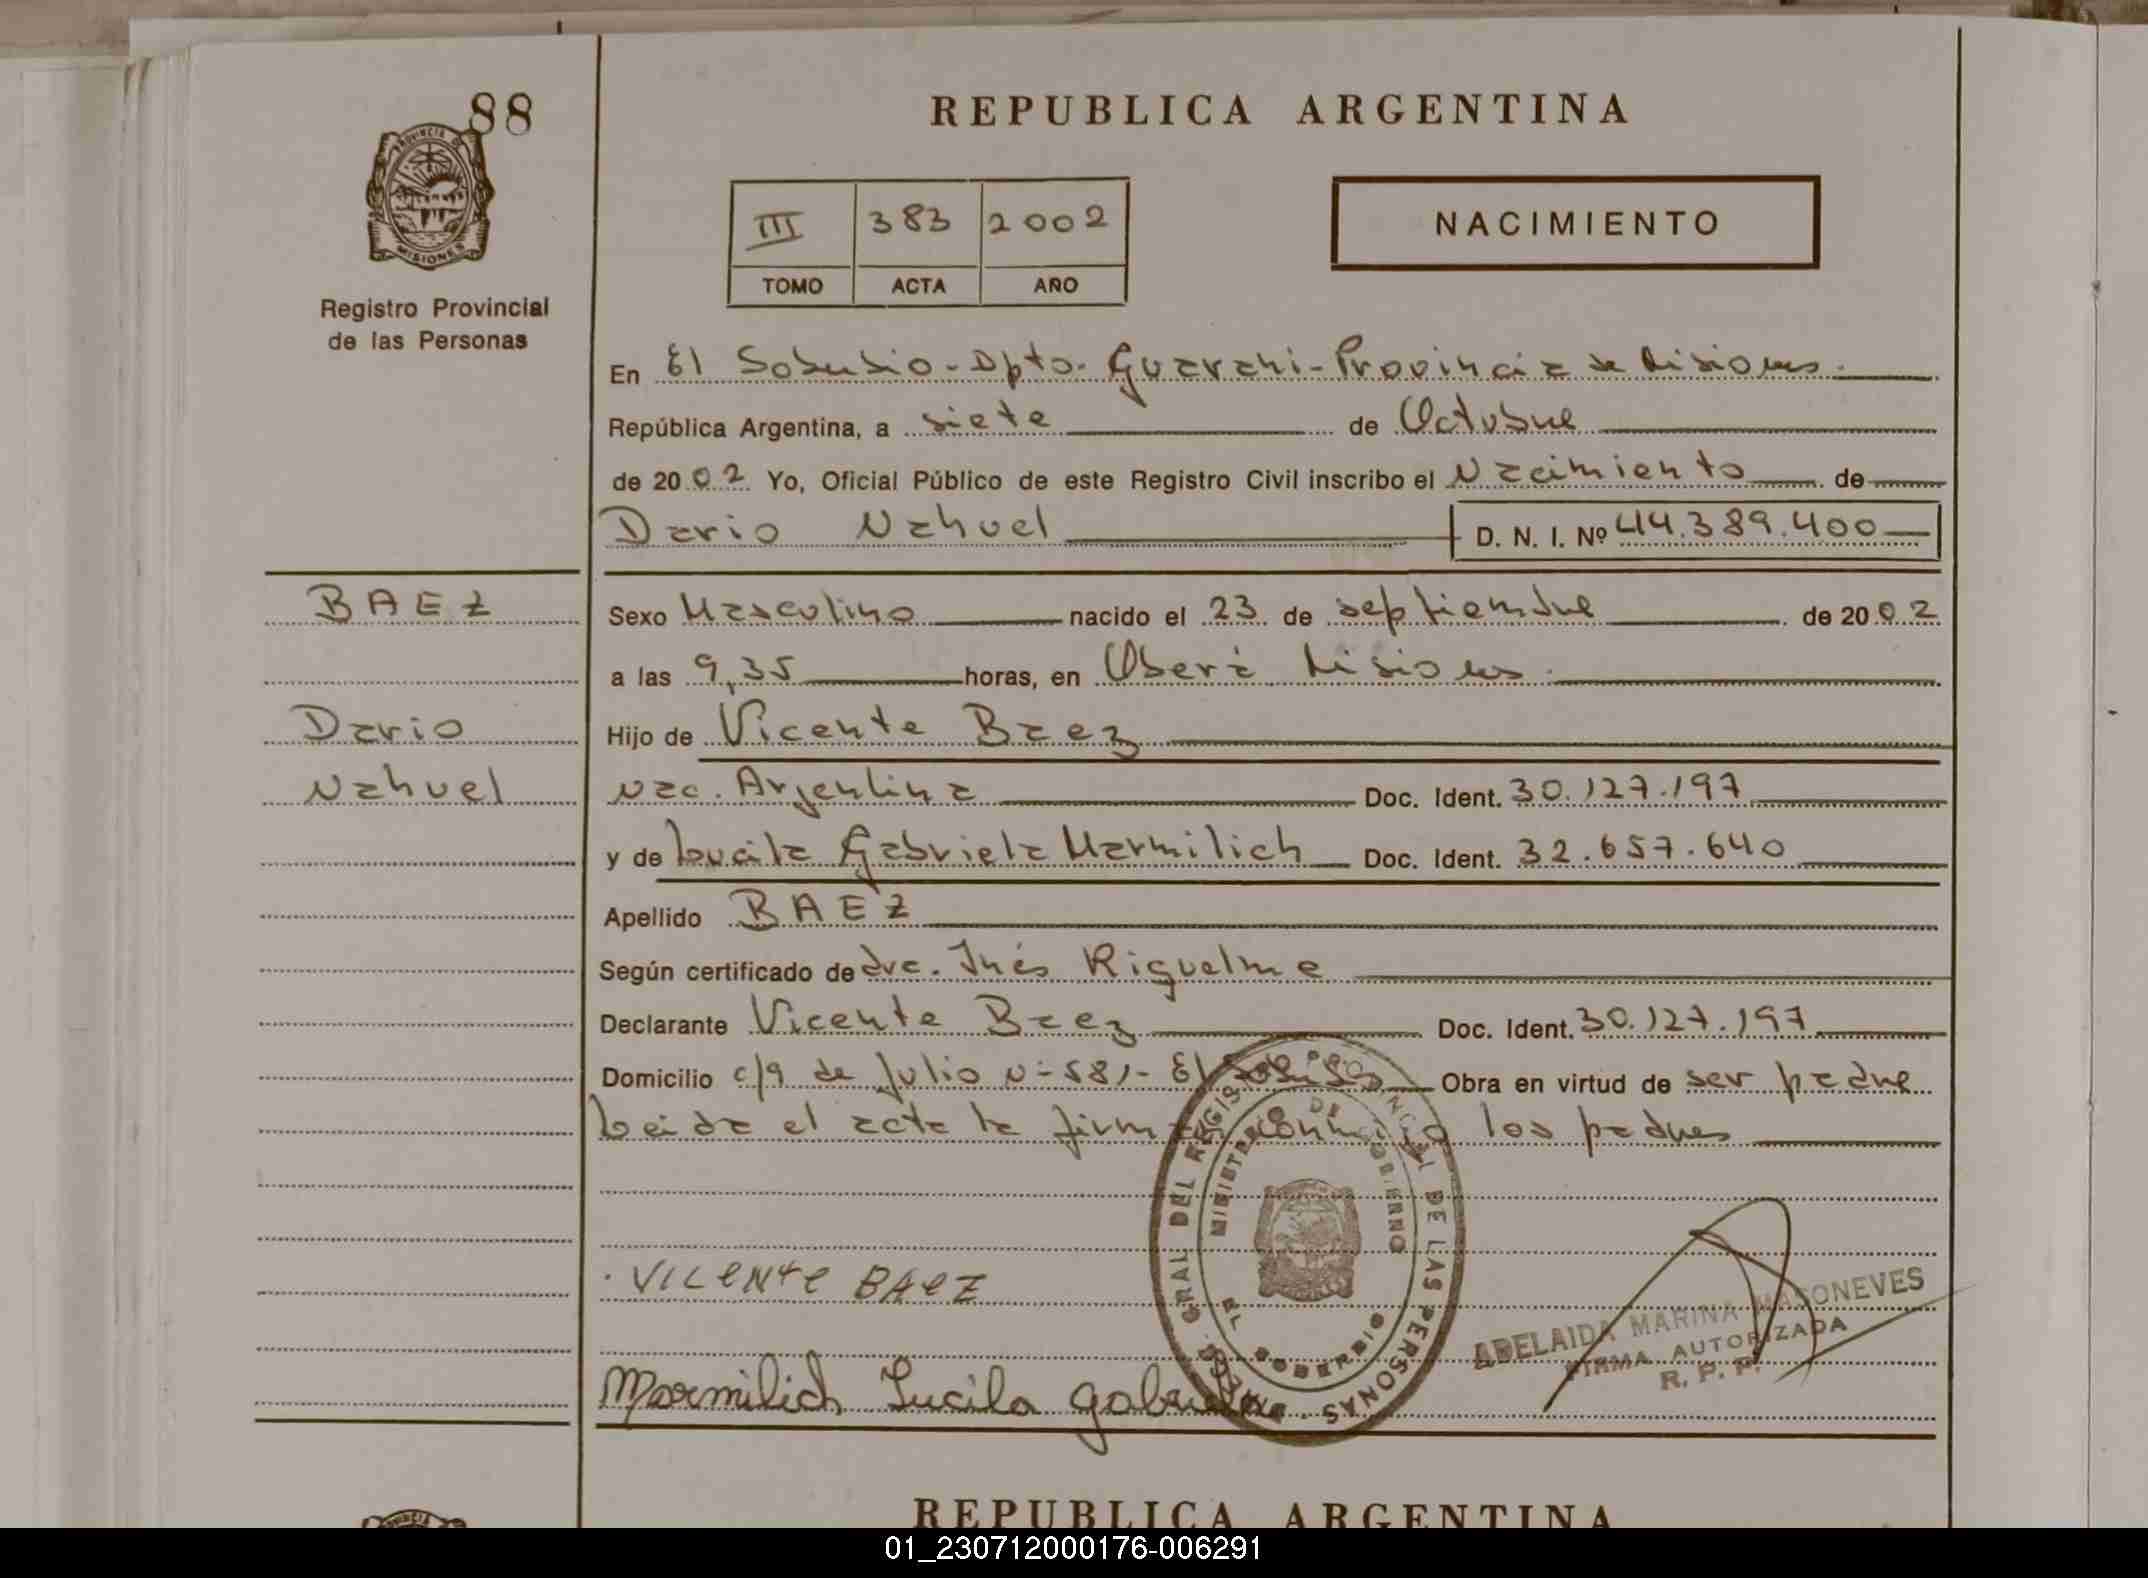 88
PROVINCIA DE
MISIONES
Registro Provincial
de las Personas
REPUBLICA ARGENTINA
III 383 2002
TOMO ACTA AÑO
NACIMIENTO
En El Soberbio - Dpto. Guarani - Provincia de Misiones.
República Argentina, a siete de Octubre
de 2002 Yo, Oficial Público de este Registro Civil inscribo el Nacimiento de
Dario Nahuel D. N. I. Nº 44.389.400
BAEZ
Dario
Nahuel
Sexo Masculino nacido el 23 de septiembre de 2002
a las 9,35 horas, en Oberá Misiones.
Hijo de Vicente Baez
Nac. Argentina Doc. Ident. 30.127.197
y de Lucila Gabriela Marmilich Doc. Ident. 32.657.640
Apellido BAEZ
Según certificado de dra. Inés Riquelme
Declarante Vicente Baez Doc. Ident. 30.127.197
Domicilio c/9 de Julio Nº 581- El Soberbio Obra en virtud de ser padre
Leida el acta la firma conmigo los padres
VICENTE BAEZ
Marmilich Lucila Gabriela
GRAL DEL REGISTRO PROVINCIAL DE LAS PERSONAS
MINISTERIO DE GOBIERNO
EL SOBERBIO
ADELAIDA MARINA MASONEVES
FIRMA AUTORIZADA
R. P. P.
REPUBLICA ARGENTINA
01_230712000176-006291